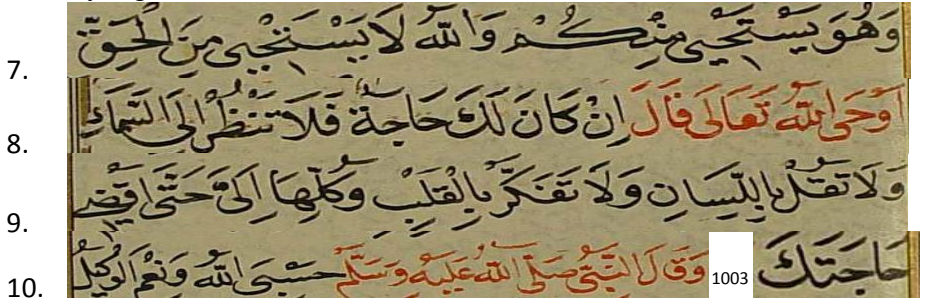 7. وَهُوَ يَسْتَحْيِي مِنْكُمْ وَاللَّهُ لَا يَسْتَحْيِي مِنَ الْحَقِّ
8. أَوْحَى اللَّهُ تَعَالَى قَالَ إِنْ كَانَ لَكَ حَاجَةٌ فَلَا تَنْظُرْ إِلَى السَّمَاءِ
9. وَلَا تَقُلْ بِاللِّسَانِ وَلَا تَفَكَّرْ بِالْقَلْبِ وَكِّلْهَا إِلَيَّ حَتَّى أَقْضِيَ
10. حَاجَتَكَ 1003 وَقَالَ النَّبِيُّ صَلَّى اللَّهُ عَلَيْهِ وَسَلَّمْ حَسْبِيَ اللَّهُ وَنِعْمَ الْوَكِيلُ